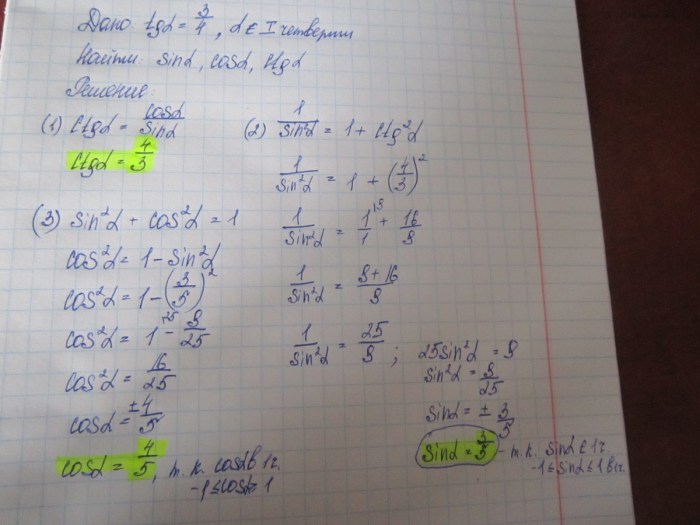 Дано: tgα = 3/4, α ∈ I четверти
Найти: sinα, cosα, ctgα
Решение:
(1) ctgα = cosα/sinα
ctgα = 4/3
(2) 1/sin²α = 1 + ctg²α
1/sin²α = 1 + (4/3)²
1/sin²α = 1/1 + 16/9
1/sin²α = 9+16/9
1/sin²α = 25/9 ; 25sin²α = 9
sin²α = 9/25
sinα = ± 3/5
sinα = 3/5 - т.к. sinα ∈ 1ч.
-1 ≤ sinα ≤ 1 в 1ч.
(3) sin²α + cos²α = 1
cos²α = 1 - sin²α
cos²α = 1 - (3/5)²
cos²α = 1 - 9/25
cos²α = 16/25
cosα = ± 4/5
cosα = 4/5, т.к. cosα в 1ч.
-1 ≤ cosα ≤ 1